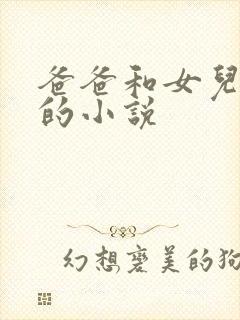 爸爸和女兒
的小說
幻想褒美的狗